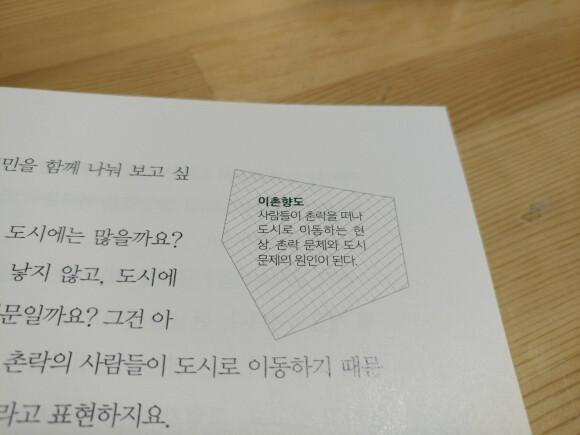 민을 함께 나눠 보고 싶
도시에는 많을까요?
낳지 않고, 도시에
문일까요? 그건 아
촌락의 사람들이 도시로 이동하기 때문
라고 표현하지요.
이촌향도
사람들이 촌락을 떠나
도시로 이동하는 현
상. 촌락 문제와 도시
문제의 원인이 된다.